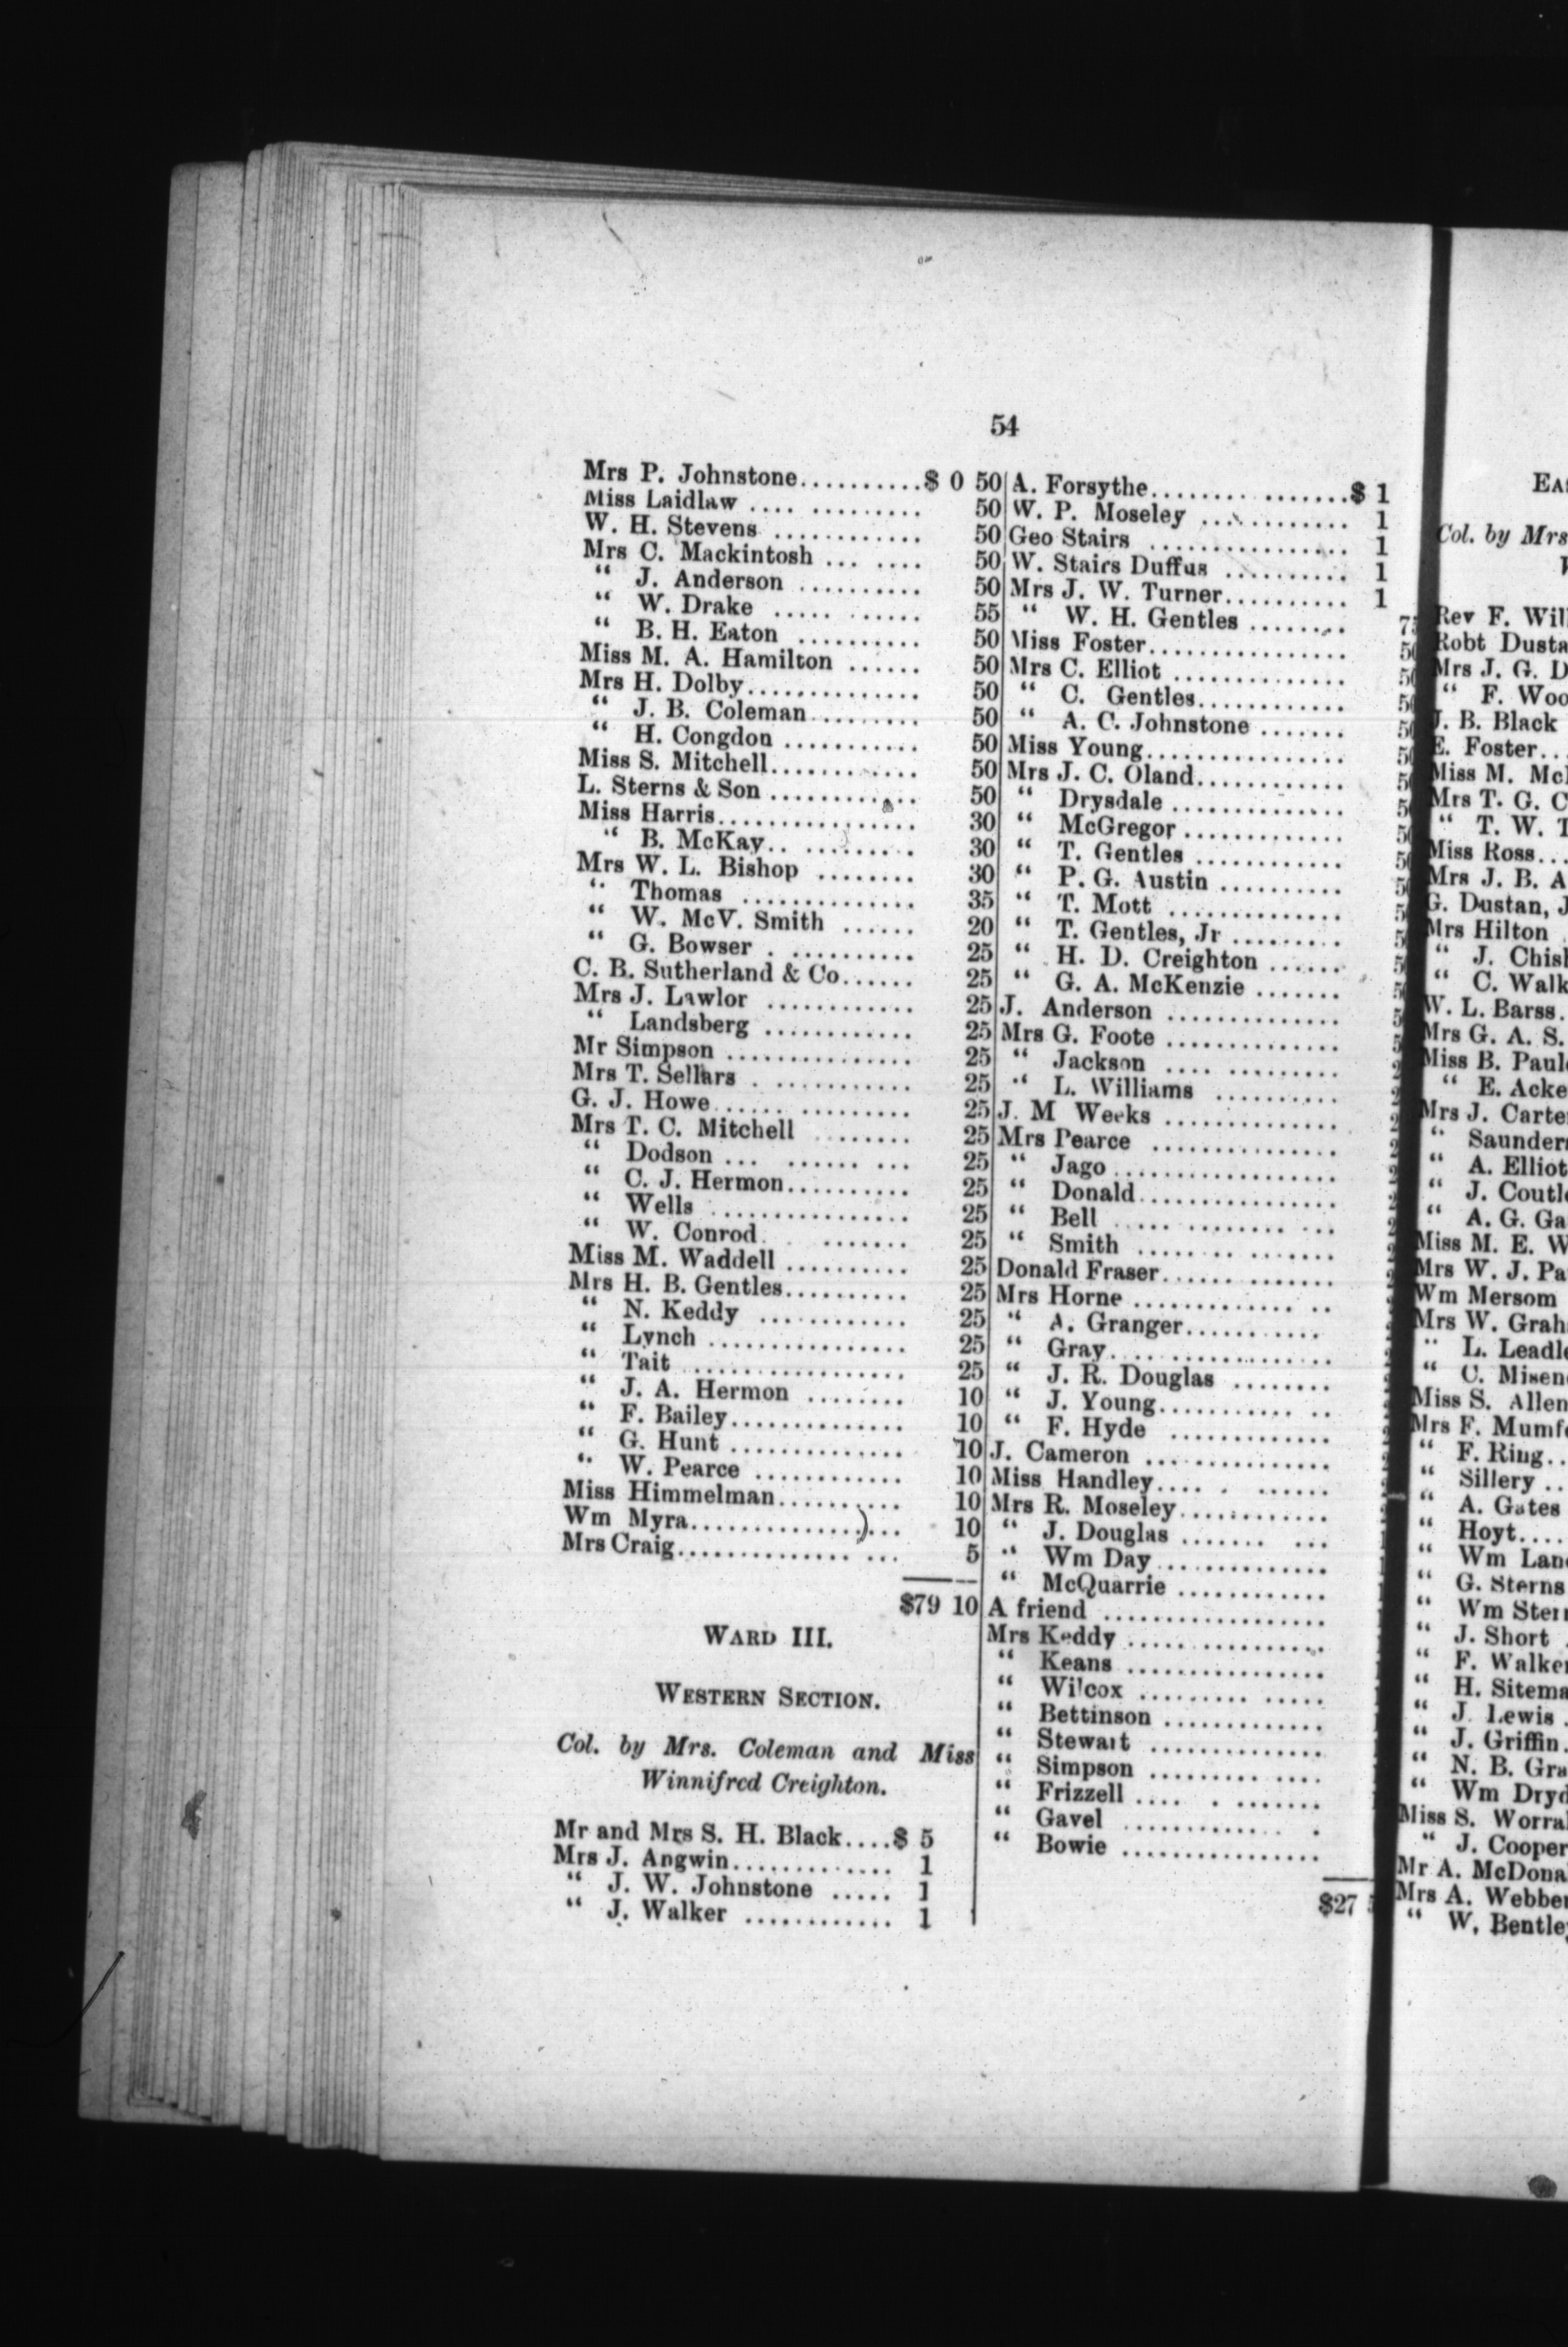 54
Mrs P. Johnstone..........$ 0 50
Miss Laidlaw .... ......... 50
W. H. Stevens ............ 50
Mrs C. Mackintosh ... .... 50
“ J. Anderson .......... 50
“ W. Drake ..... ...... 55
“ B. H. Eaton .......... 50
Miss M. A. Hamilton ...... 50
Mrs H. Dolby.............. 50
“ J. B. Coleman......... 50
“ H. Congdon ........... 50
Miss S. Mitchell............ 50
L. Sterns & Son ............ 50
Miss Harris................ 30
“ B. McKay.. ......... 30
Mrs W. L. Bishop ........ 30
“ Thomas .............. 35
“ W. McV. Smith ...... 20
“ G. Bowser . .......... 25
C. B. Sutherland & Co...... 25
Mrs J. Lawlor ............ 25
“ Landsberg ............ 25
Mr Simpson ............... 25
Mrs T. Sellars . ........... 25
G. J. Howe...... ......... 25
Mrs T. C. Mitchell ........ 25
“ Dodson ... ...... ... 25
“ C. J. Hermon.......... 25
“ Wells ................ 25
“ W. Conrod. ....... 25
Miss M. Waddell .......... 25
Mrs H. B. Gentles.......... 25
“ N. Keddy ............ 25
“ Lynch ................ 25
“ Tait ................. 25
“ J. A. Hermon ........ 10
“ F. Bailey.............. 10
“ G. Hunt .............. 10
“ W. Pearce ............ 10
Miss Himmelman.......... 10
Wm Myra................. 10
Mrs Craig.............. ... 5
$79 10
WARD III.
WESTERN SECTION.
Col. by Mrs. Coleman and Miss
Winnifred Creighton.
Mr and Mrs S. H. Black....$ 5
Mrs J. Angwin............. 1
“ J. W. Johnstone ..... 1
“ J. Walker ............ 1
A. Forsythe................$ 1
W. P. Moseley ............ 1
Geo Stairs ................ 1
W. Stairs Duffus .......... 1
Mrs J. W. Turner.......... 1
“ W. H. Gentles ........
Miss Foster................
Mrs C. Elliot ..............
“ C. Gentles............
“ A. C. Johnstone .......
Miss Young................
Mrs J. C. Oland............
“ Drysdale ..............
“ McGregor .............
“ T. Gentles ............
“ P. G. Austin ..........
“ T. Mott ..............
“ T. Gentles, Jr .........
“ H. D. Creighton ......
“ G. A. McKenzie .......
J. Anderson ..............
Mrs G. Foote ..............
“ Jackson .... .........
“ L. Williams ..........
J. M Weeks ..............
Mrs Pearce ...............
“ Jago..................
“ Donald................
“ Bell ..... ......... ...
“ Smith ..... .. .......
Donald Fraser...... .......
Mrs Horne ............. ..
“ A. Granger...........
“ Gray.... .............
“ J. R. Douglas ........
“ J. Young........... ..
“ F. Hyde .............
J. Cameron ... ............
Miss Handley.... . ......
Mrs R. Moseley............
“ J. Douglas ....... ...
“ Wm Day..............
“ McQuarrie ............
A friend ..................
Mrs Keddy ..... ..........
“ Keans ................
“ Wilcox ......... .....
“ Bettinson .............
“ Stewart ..............
“ Simpson ......... ....
“ Frizzell .... . .......
“ Gavel ............. .
“ Bowie ................
$27
Col. by Mrs
Rev F.
Robt
Mrs J. G.
“ F.
J. B. Black
E. Foster...
Miss M.
Mrs T. G.
“ T. W.
Miss Ross...
Mrs J. B.
G. Dustan,
Mrs Hilton
“ J.
“ C.
W. L. Barss.
Mrs G. A. S.
Miss B.
“ E.
Mrs J.
“
“ A.
“ J.
“ A. G.
Miss M. E.
Mrs W. J.
Wm Mersom
Mrs W.
“ L.
“ C.
Miss S.
Mrs F.
“ F. Ring..
“ Sillery ..
“ A. Gates
“ Hoyt....
“ Wm
“ G. Sterns
“ Wm
“ J. Short
“ F.
“ H.
“ J. Lewis .
“ J. Griffin.
“ N. B.
“ Wm
Miss S.
“ J. Cooper
Mr A.
Mrs A.
“ W.